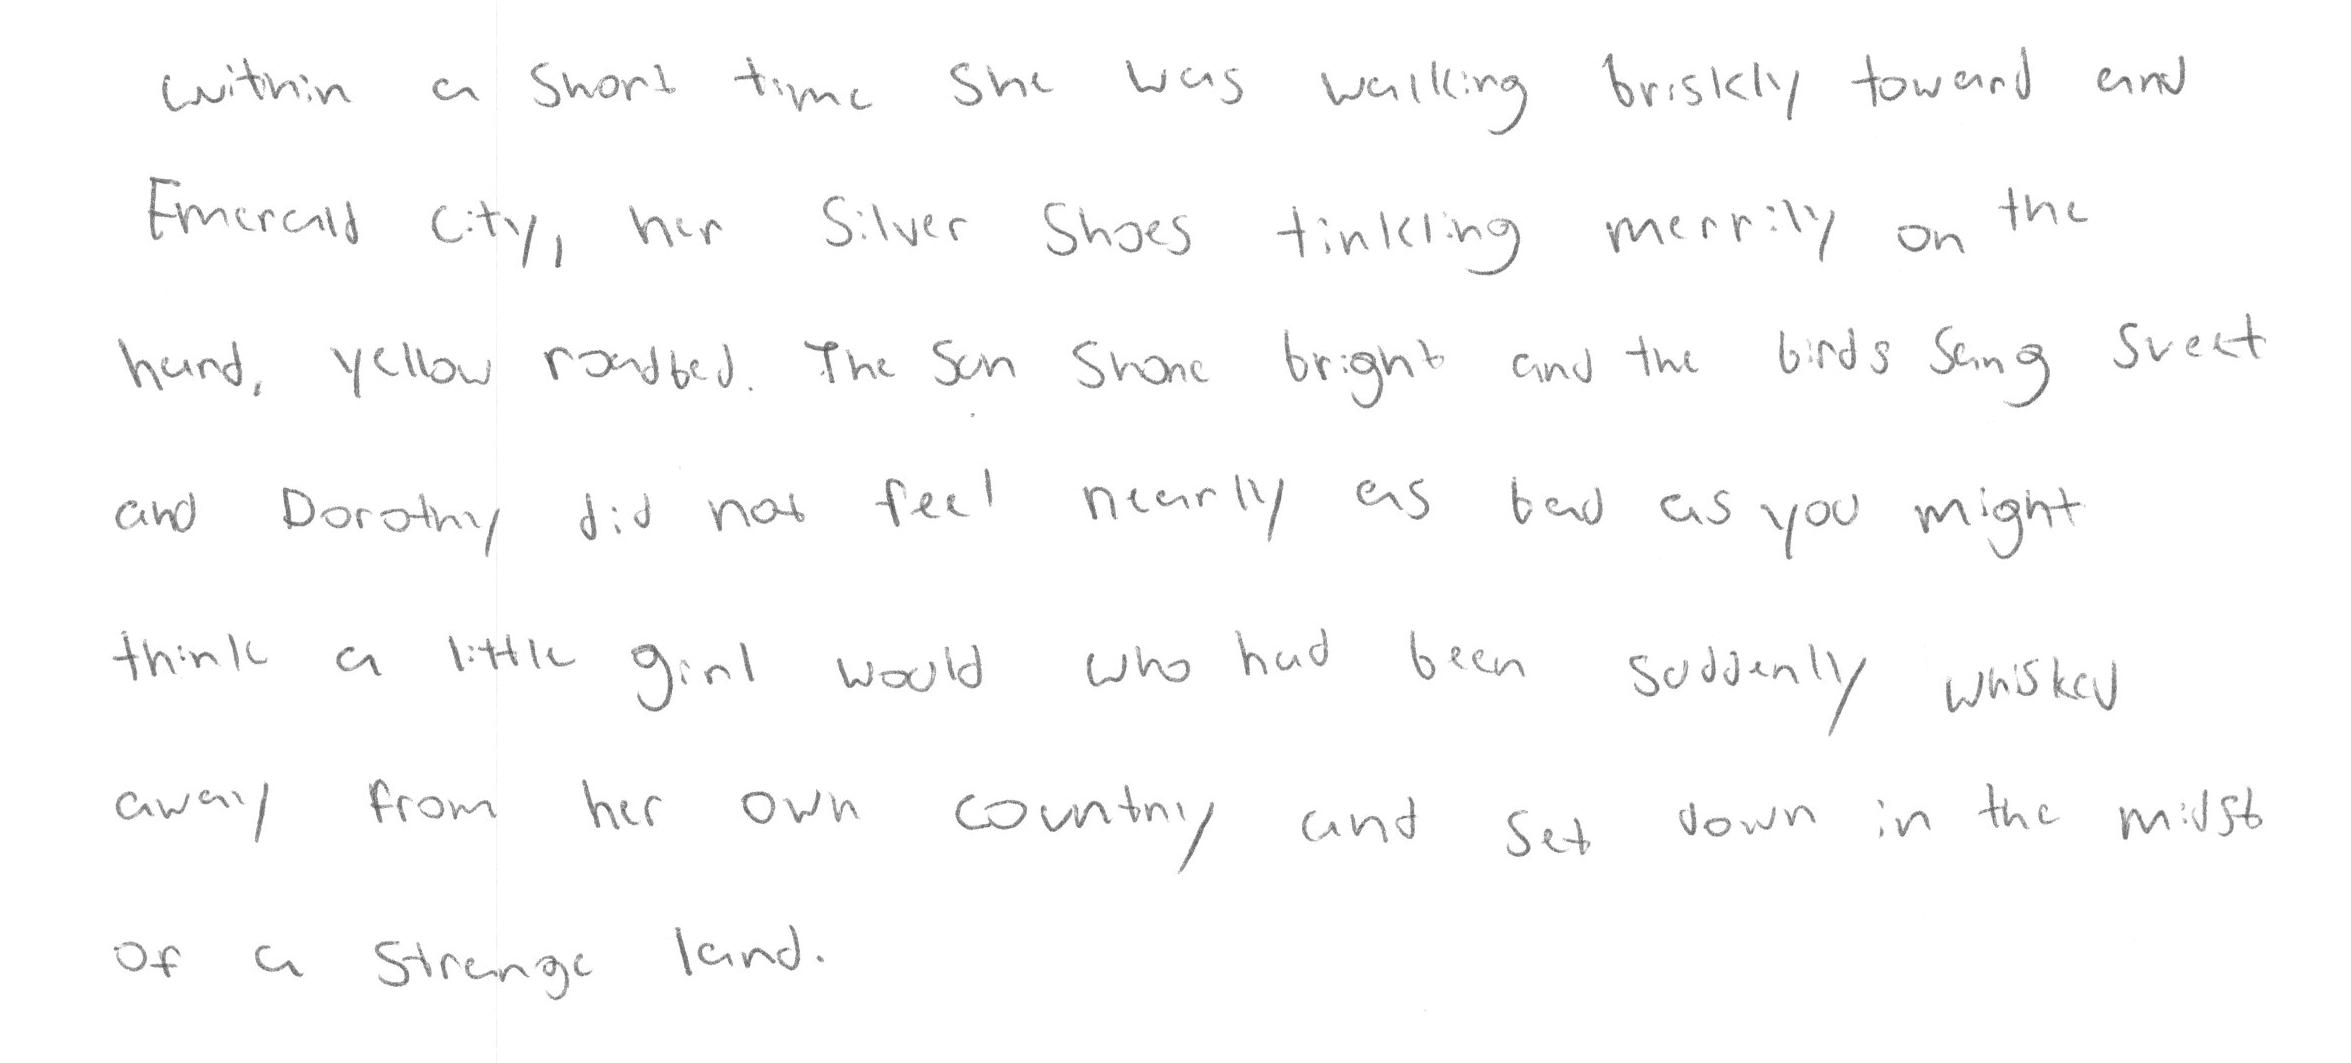 within a short time she was walking briskly toward and
Emerald City, her Silver Shoes tinkling merrily on the
hard, yellow roadbed. The sun shone bright and the birds sang sweet
and Dorothy did not feel nearly as bad as you might
think a little girl would who had been suddenly whisked
away from her own country and set down in the midst
of a strange land.